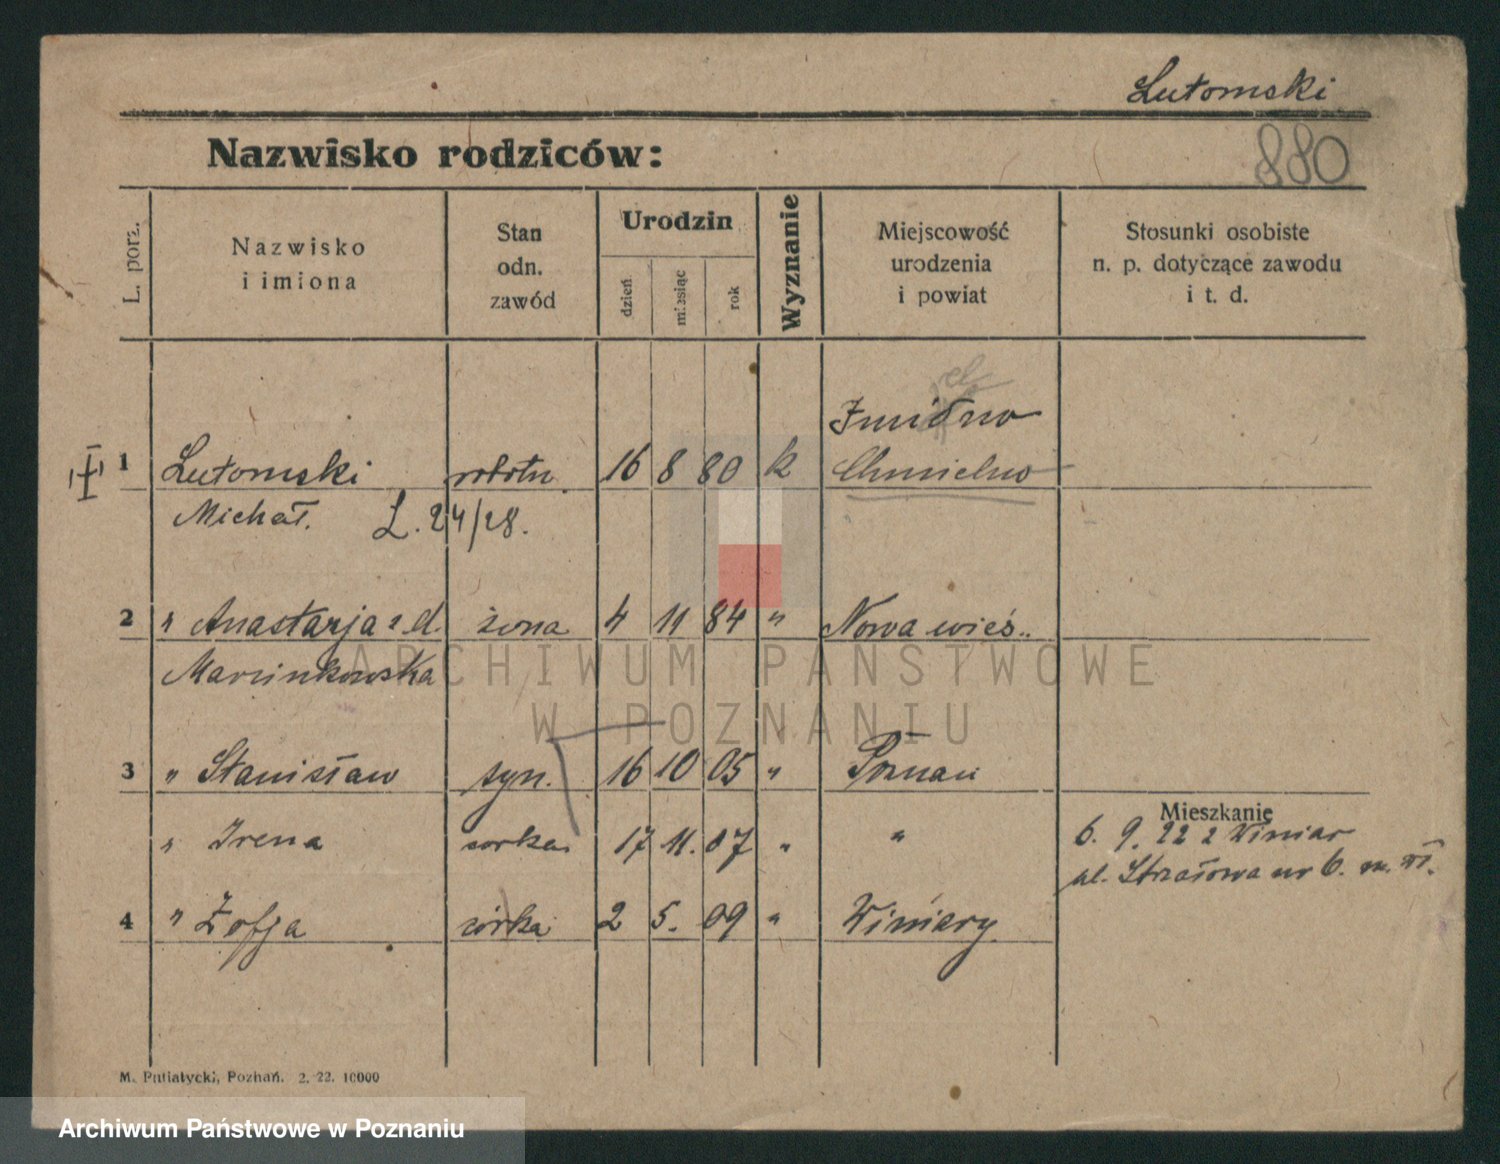 Lutomski
Nazwisko rodziców:
880
L. porz.
Nazwisko
i imiona
Stan
odn.
zawód
Urodzin
dzień
miesiąc
rok
Wyznanie
Miejscowość
urodzenia
i powiat
Stosunki osobiste
n. p. dotyczące zawodu
i t. d.
1 Lutomski robotn. 16 8 80 k Chmielno
Michał. L. 24/28.
2 " Anastazja z d. żona 4 11 84 " Nowawieś..
Marcinkowska
ARCHIWUM PAŃSTWOWE
W POZNANIU
3 " Stanisław syn. 16 10 05 " Poznań
Mieszkanie
" Irena corka 17 11. 07 " "
6. 9. 22 z Winiar
ul. Strzałowa nr 6.
4 " Zofja córka 2 5. 09 " Winiary
M. Putiatycki, Poznań. 2. 22. 10000
Archiwum Państwowe w Poznaniu